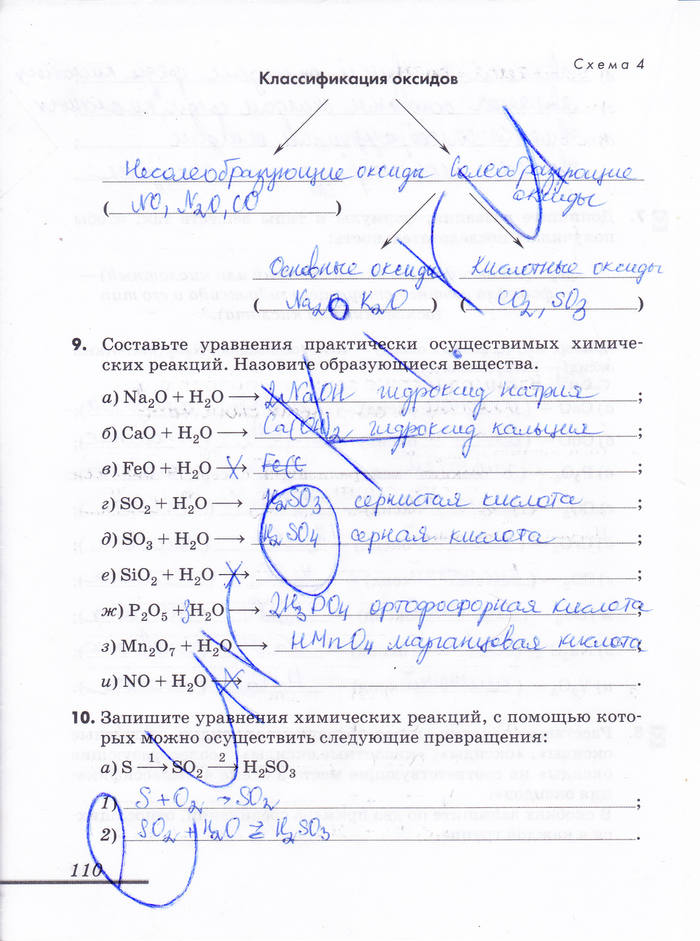 Схема 4
Классификация оксидов
Несолеобразующие оксиды Солеобразующие
( NO, N2O, CO ) оксиды
Основные оксиды Кислотные оксиды
( Na2O, K2O ) ( CO2, SO3 )
9. Составьте уравнения практически осуществимых химиче-
ских реакций. Назовите образующиеся вещества.
а) Na2O + H2O → 2NaOH гидроксид натрия ;
б) CaO + H2O → Ca(OH)2 гидроксид кальция ;
в) FeO + H2O → ;
г) SO2 + H2O → H2SO3 сернистая кислота ;
д) SO3 + H2O → H2SO4 серная кислота ;
е) SiO2 + H2O → ;
ж) P2O5 + 3H2O → 2H3PO4 ортофосфорная кислота ;
з) Mn2O7 + H2O → HMnO4 марганцовая кислота ;
и) NO + H2O → .
10. Запишите уравнения химических реакций, с помощью кото-
рых можно осуществить следующие превращения:
а) S →1 SO2 →2 H2SO3
1) S + O2 → SO2 ;
2) SO2 + H2O ⇄ H2SO3 .
110